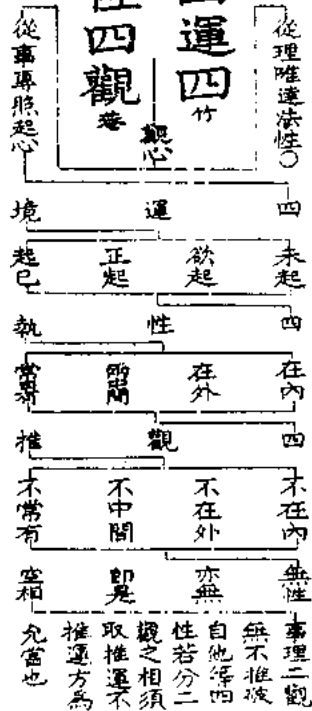 運四
竹
性四觀
菴
從理唯達法性○
觀心
從事專照起心
四運境
未起
欲起
正起
起已
四性執
在內
在外
中間
常有
四觀推
不在內
不在外
不中間
不常有
無性
亦無
即是
空相
事理二觀
無不推破
自他等四
性若分二
觀之相須
取推運不
推運方為
允當也